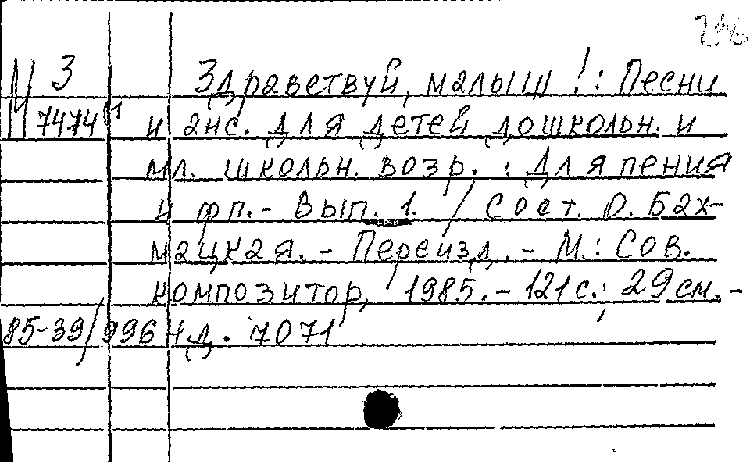 296
М 3 Здравствуй, малыш!: Песни
7474 и анс. для детей дошкольн. и
мл. школьн. возр.: Для пения
и фп. - Вып. 1. / Сост. О. Бах-
мацкая. - Переизд. - М.: Сов.
композитор, 1985. - 121 с.; 29 см. -
85-39/996 Н.д. 7071